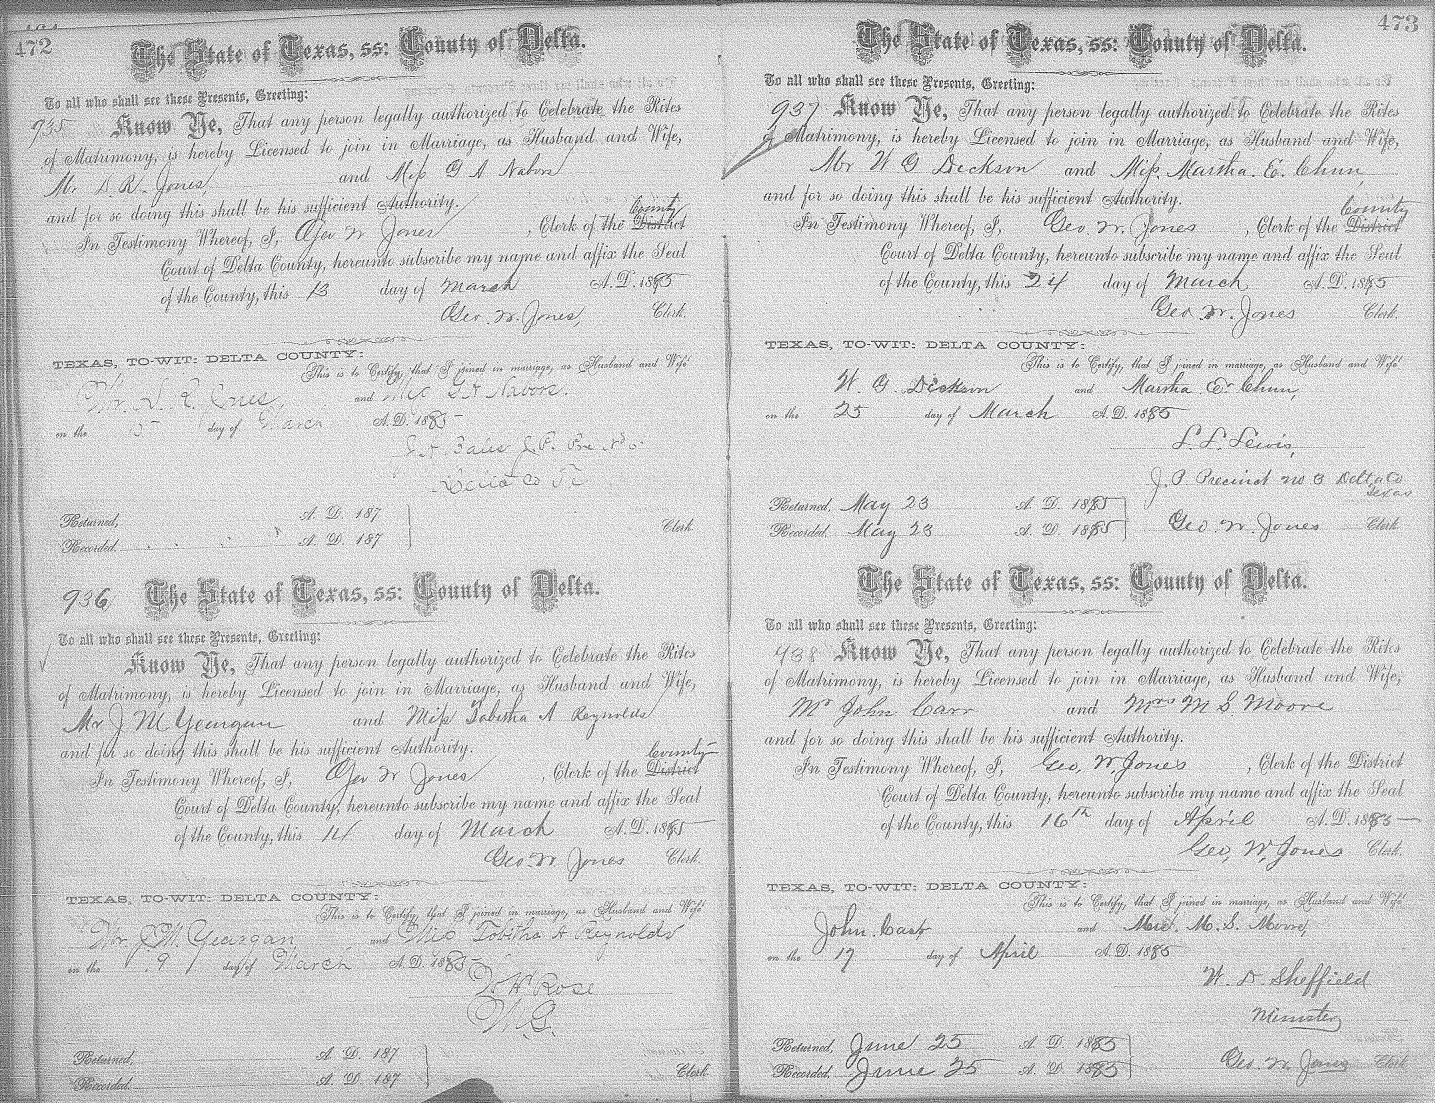 472
The State of Texas, ss: County of Delta.
To all who shall see these Presents, Greeting:
935 Know Ye, That any person legally authorized to Celebrate the Rites
of Matrimony, is hereby Licensed to join in Marriage, as Husband and Wife,
Mr. S. R. Jones and Miss G A Nabors
and for so doing this shall be his sufficient Authority.
County
In Testimony Whereof, I, Geo W Jones, Clerk of the District
Court of Delta County, hereunto subscribe my name and affix the Seal
of the County, this 13 day of March A.D. 1885
Geo. W. Jones, Clerk.
TEXAS, TO-WIT: DELTA COUNTY:
This is to Certify, that I joined in marriage, as Husband and Wife
Mr. S. R. Jones and Miss G A Nabors
on the 15 day of March A.D. 1885
J. P. Pre No.
Delta Co
Returned, A. D. 187
Recorded. A. D. 187 Clerk
936 The State of Texas, ss: County of Delta.
To all who shall see these Presents, Greeting:
Know Ye, That any person legally authorized to Celebrate the Rites
of Matrimony, is hereby Licensed to join in Marriage, as Husband and Wife,
Mr J M Yeargan and Miss Tabitha A Reynolds
and for so doing this shall be his sufficient Authority.
County
In Testimony Whereof, I, Geo W Jones, Clerk of the District
Court of Delta County, hereunto subscribe my name and affix the Seal
of the County, this day of March A.D. 1885
Geo. W Jones Clerk.
TEXAS, TO-WIT: DELTA COUNTY:
This is to Certify, that I joined in marriage, as Husband and Wife
Mr. J. M. Yeargan and Miss Tobitha A Reynolds
on the 9 day of March A.D. 1885
W Rose
M. G.
Returned, A. D. 187
Recorded. A. D. 187 Clerk
473
The State of Texas, ss: County of Delta.
To all who shall see these Presents, Greeting:
937 Know Ye, That any person legally authorized to Celebrate the Rites
of Matrimony, is hereby Licensed to join in Marriage, as Husband and Wife,
Mr W G Dickson and Miss. Martha. E. Chun,
and for so doing this shall be his sufficient Authority.
County
In Testimony Whereof, I, Geo. W. Jones, Clerk of the District
Court of Delta County, hereunto subscribe my name and affix the Seal
of the County, this 24 day of March A.D. 1885
Geo W. Jones Clerk.
TEXAS, TO-WIT: DELTA COUNTY:
This is to Certify, that I joined in marriage, as Husband and Wife
W. G. Dickson and Martha E. Chun,
on the 25 day of March A.D. 1885
L. L. Lewis,
J. P Precinct no 3 Delta Co
Texas
Returned, May 23 A. D. 1885
Recorded. May 23 A. D. 1885 Geo W Jones Clerk
The State of Texas, ss: County of Delta.
To all who shall see these Presents, Greeting:
938 Know Ye, That any person legally authorized to Celebrate the Rites
of Matrimony, is hereby Licensed to join in Marriage, as Husband and Wife,
Mr John Carr and Mrs M S Moore
and for so doing this shall be his sufficient Authority.
In Testimony Whereof, I, Geo, W, Jones, Clerk of the District
Court of Delta County, hereunto subscribe my name and affix the Seal
of the County, this 16th day of April A.D. 1885
Geo, W, Jones Clerk.
TEXAS, TO-WIT: DELTA COUNTY:
This is to Certify, that I joined in marriage, as Husband and Wife
John. Carr and M. S. Moore,
on the 17 day of April A.D. 1885
W. D. Sheffield
Minister
Returned, June 25 A. D. 1885
Recorded. June 25 A. D. 1885 Geo. W Jones Clerk